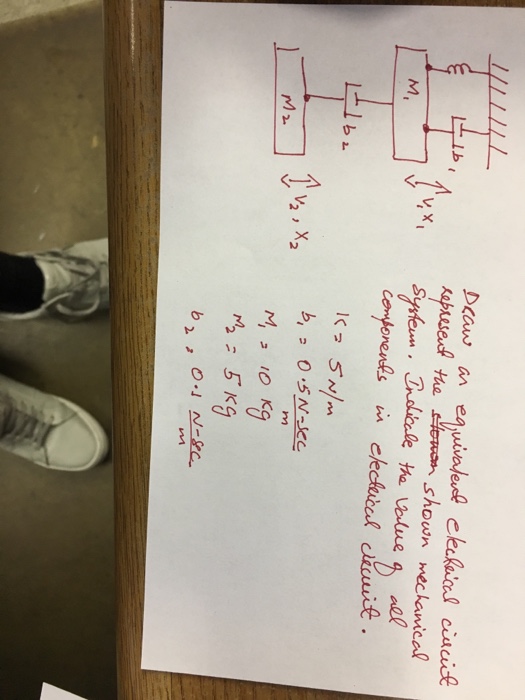 Draw an equivalent electrical circuit
represent the shown mechanical
system. Indicate the value of all
components in electrical circuit.
K = 5 N/m
b1 = 0.5 N-sec/m
M1 = 10 Kg
M2 = 5 Kg
b2 = 0.1 N-sec/m
b1
M1
V1 X1
b2
M2
V2, X2